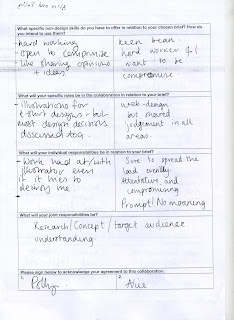 What specific non-design skills do you have to offer in relation to your chosen brief? How do you intend to use them?
hard working
open to compromise
like sharing opinions
+ ideas
Keen bean.
hard worker if I
want to be
compromise
What will your specific roles be in the collaboration in relation to your brief?
illustrations for
t-shirt designs - but
most design decisions
discussed tog.
web-design
but shared
judgement in all
areas.
What will your individual responsibilities be in relation to the brief?
- Work hard at/with
illustrator even
if it tries to
destroy me.
Sure to spread the
load evenly.
Attentative, and
compromising
Prompt/No moaning
What will your joint responsibilities be?
Research/Concept/target audience
understanding.
Please sign below to acknowledge your agreement to this collaboration.
1.
2.